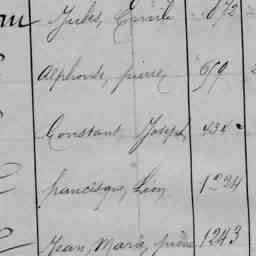 Jules, Emile 672
Alphonse, pierre 659
Constant, Joseph 434
francisque, Léon 1224
Jean, Marie, pierre 1243